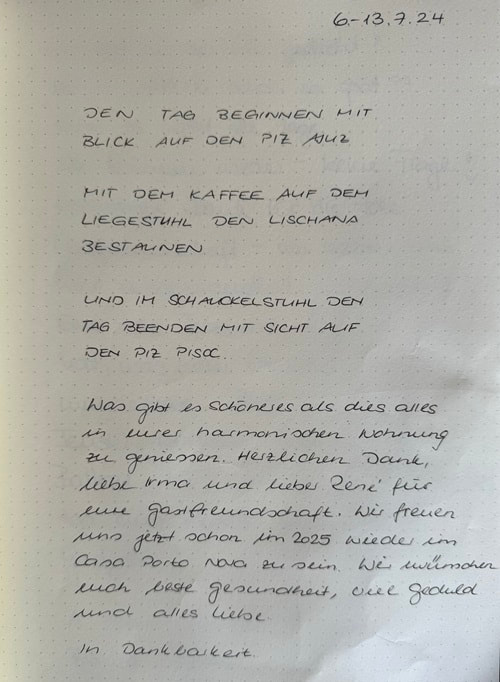 6.-13.7.24
DEN TAG BEGINNEN MIT
BLICK AUF DEN PIZ AJÜZ
MIT DEM KAFFEE AUF DEM
LIEGESTUHL DEN LISCHANA
BESTAUNEN
UND IM SCHAUCKELSTUHL DEN
TAG BEENDEN MIT SICHT AUF
DEN PIZ PISOC.
Was gibt es schöneres als dies alles
in eurer harmonischen Wohnung
zu geniessen. Herzlichen Dank,
liebe Irma und lieber René für
eure Gastfreundschaft. Wir freuen
uns jetzt schon im 2025 wieder im
Casa Porta Nova zu sein. Wir wünschen
euch beste Gesundheit, viel Geduld
und alles Liebe.
In Dankbarkeit.